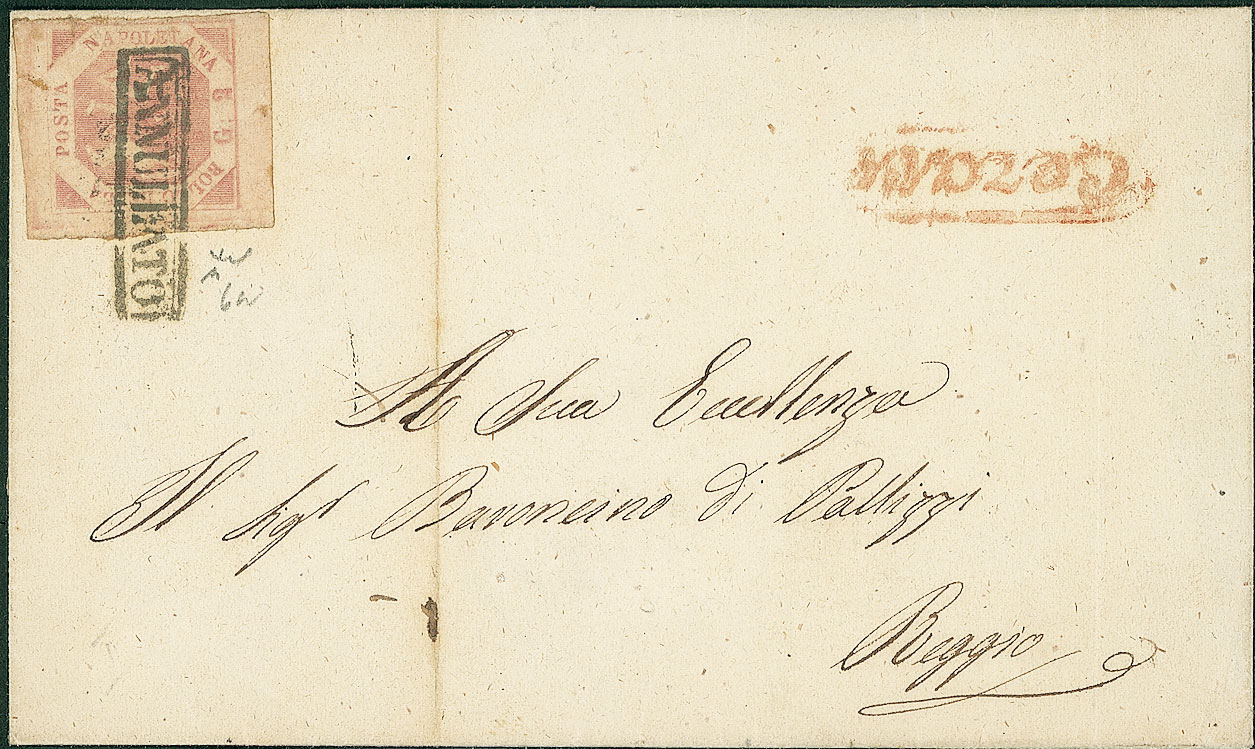 POSTA NAPOLETANA G. 2
ANNULLATO
Gerace
A Sua Eccellenza
Il Sigr Baroncino di Palizzi
Reggio